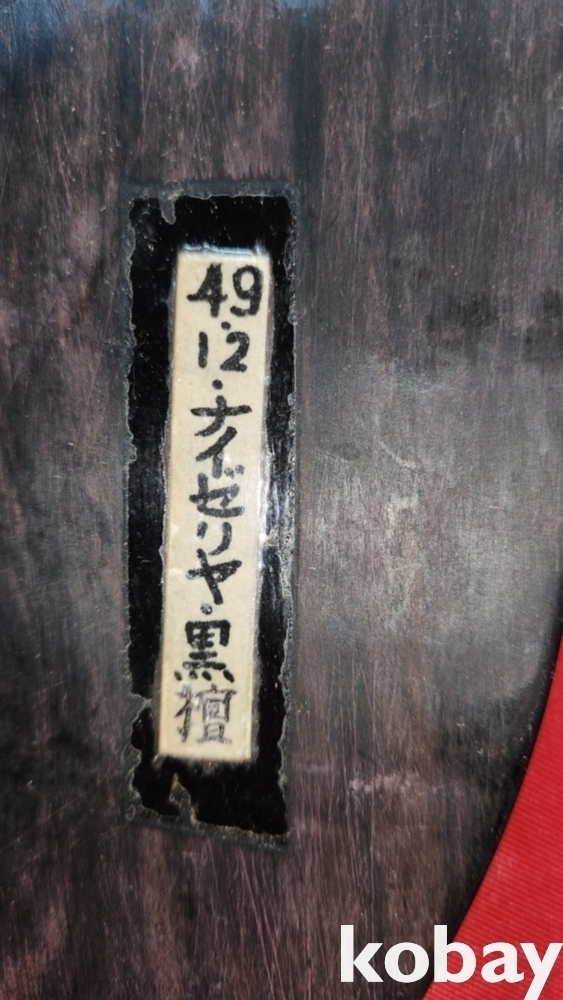 49.12・ナイゼリヤ・黒檀
kobay